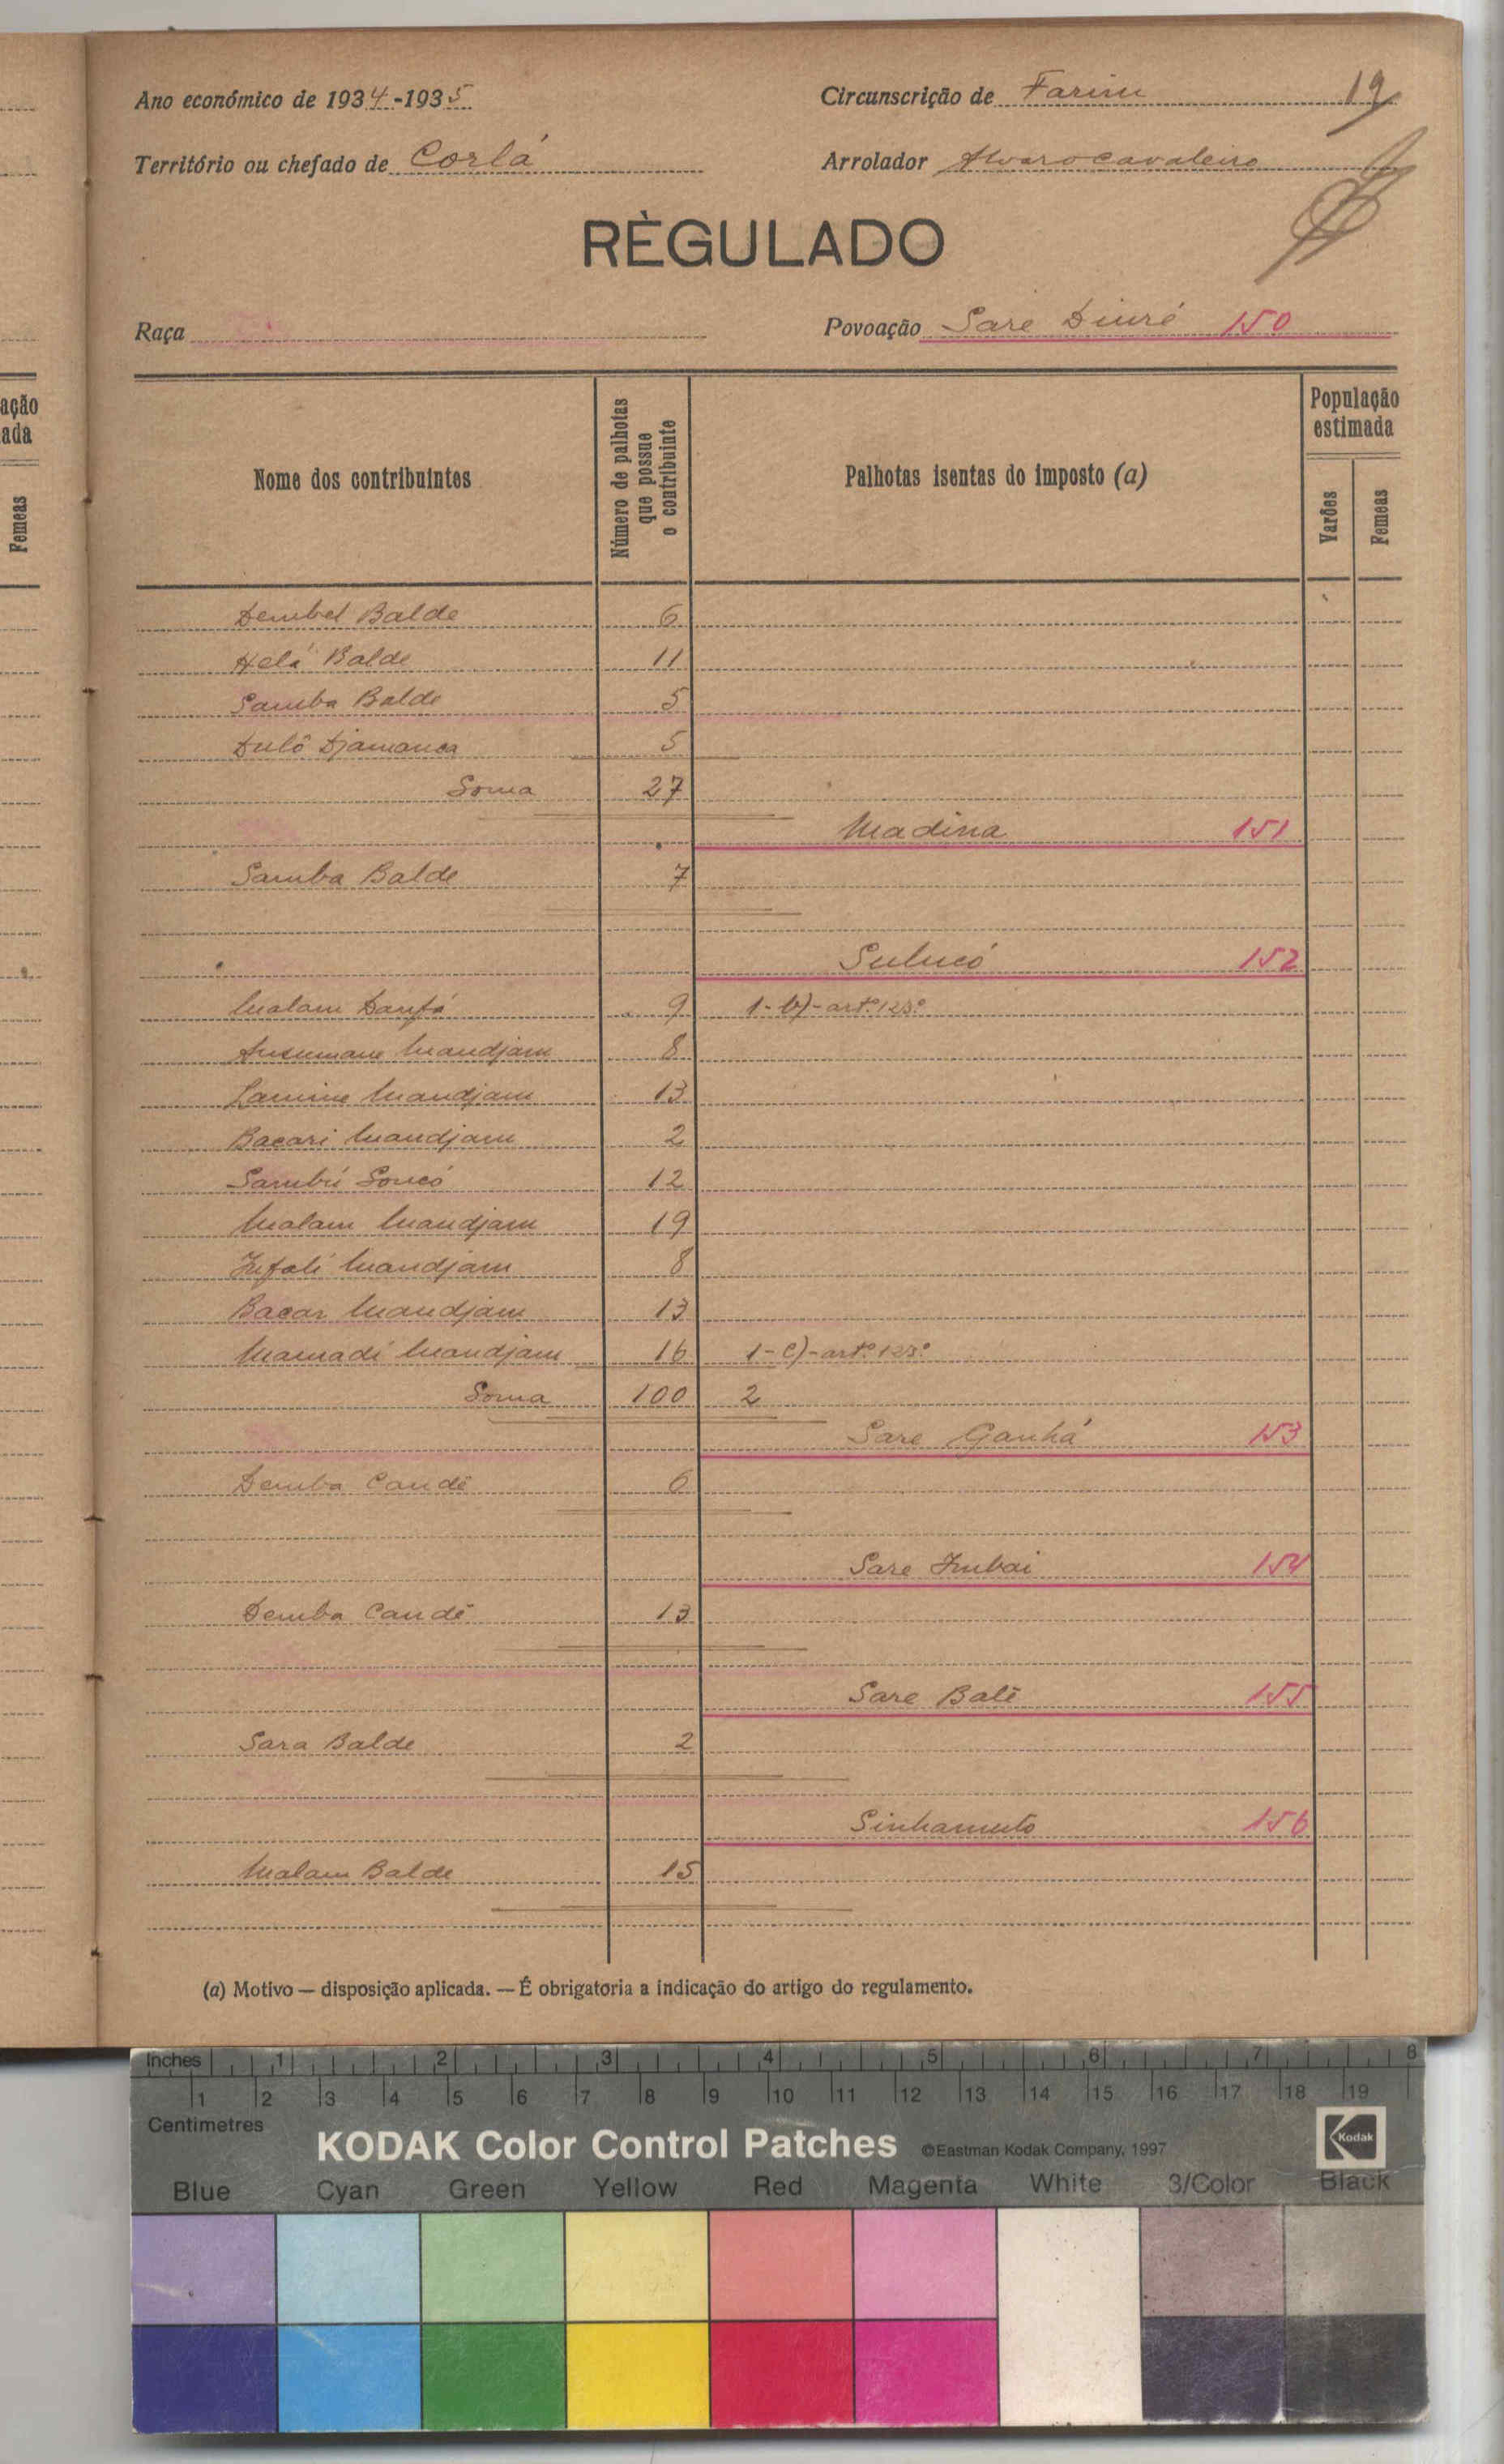 Ano económico de 1934-1935
Circunscrição de Farim 19
Território ou chefado de Corlá
Arrolador Alvaro Cavaleiro
RÈGULADO
Raça
Povoação Sare Diuré 150
ação
ada
Femeas
Nome dos contribuintes
Número de palhotas que possue o contribuinte
Palhotas isentas do imposto (a)
População estimada
Varões
Femeas
Dembel Balde 6
Helá Balde 11
Samba Balde 5
Dulô Djamanca 5
Soma 27
Madina 151
Samba Balde 7
Sulucó 152
Malam Danfá 9 1-b)-artº.123º
Ansumane Mandjam 8
Lamine Mandjam 13
Bacari Mandjam 2
Sambú Soncó 12
Malam Mandjam 19
Infali Mandjam 8
Bacar Mandjam 13
Mamadi Mandjam 16 1-c)-artº.123º
Soma 100 2
Sare Ganhá 153
Demba Candé 6
Sare Imbai 154
Demba Candé 13
Sare Balé 155
Sara Balde 2
Sinhamuto 156
Malam Balde 15
(a) Motivo — disposição aplicada. — É obrigatoria a indicação do artigo do regulamento.
Inches 1 2 3 4 5 6 7 8
1 2 3 4 5 6 7 8 9 10 11 12 13 14 15 16 17 18 19
Centimetres
KODAK Color Control Patches ©Eastman Kodak Company, 1997 Kodak
Blue Cyan Green Yellow Red Magenta White 3/Color Black